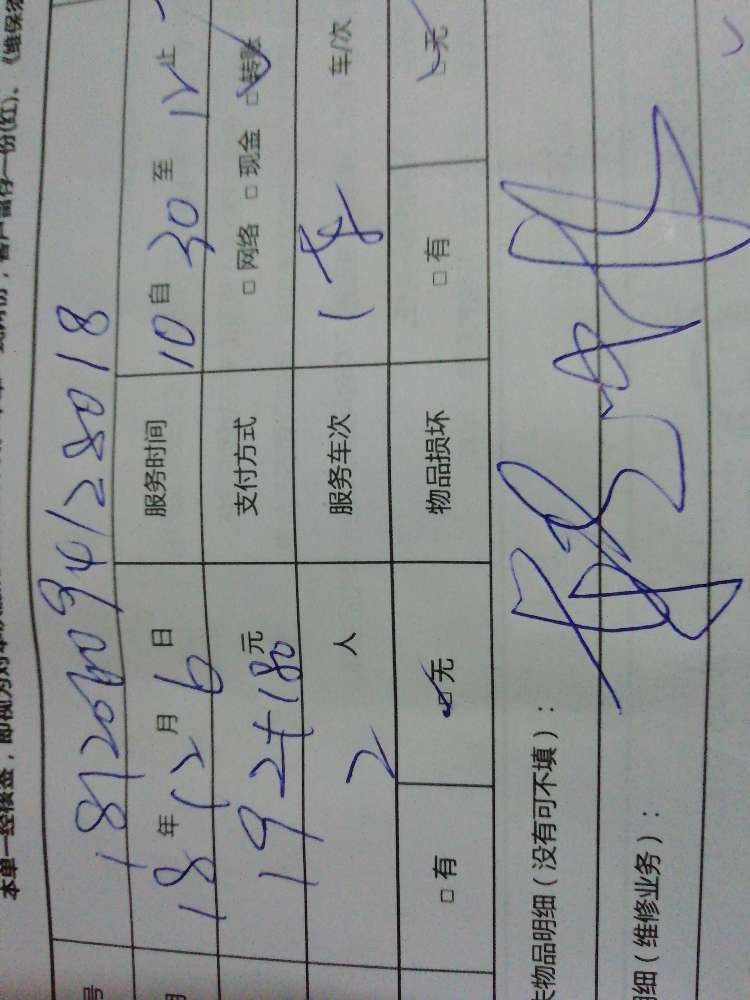 本单一经核签，即视为对本次服
客户留存一份(红)。《维保须
号 1812060941228018
18年12月6日 服务时间 10自30至12止
192+180元 支付方式 □网络 □现金 □转账
2人 服务车次 1车 车/次
□有 □无 物品损坏 □有 □无
失物品明细（没有可不填）：
细（维修业务）：